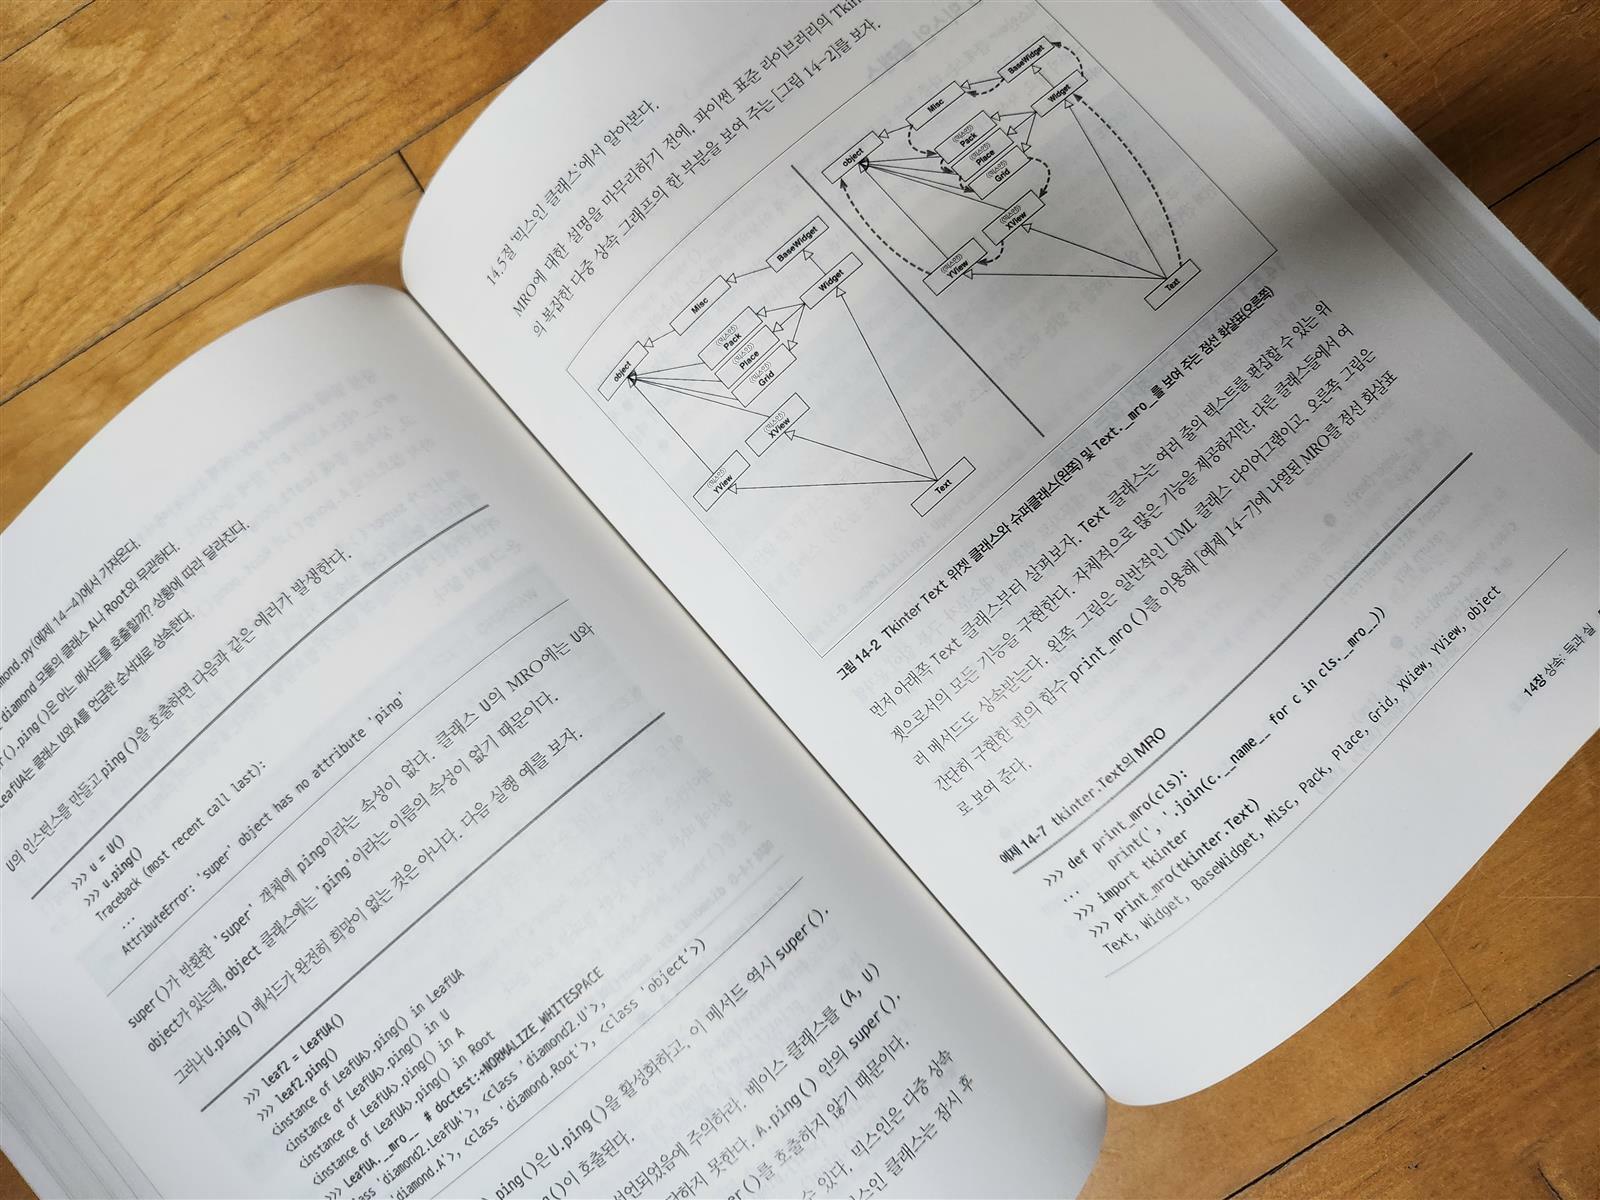 amond.py(예제 14-4)에서 가져온다.
diamond 모듈의 클래스 A나 Root와 무관하다.
().ping()은 어느 메서드를 호출할까? 상황에 따라 달라진다.
LeafUA는 클래스 U와 A를 언급한 순서대로 상속한다.
U의 인스턴스를 만들고 ping()을 호출하면 다음과 같은 에러가 발생한다.
>>> u = U()
>>> u.ping()
Traceback (most recent call last):
...
AttributeError: 'super' object has no attribute 'ping'
super()가 반환한 'super' 객체에 ping이라는 속성이 없다. 클래스 U의 MRO에는 U와
object가 있는데, object 클래스에는 'ping'이라는 이름의 속성이 없기 때문이다.
그러나 U.ping() 메서드가 완전히 희망이 없는 것은 아니다. 다음 실행 예를 보자.
>>> leaf2 = LeafUA()
>>> leaf2.ping()
<instance of LeafUA>.ping() in LeafUA
<instance of LeafUA>.ping() in U
<instance of LeafUA>.ping() in A
<instance of LeafUA>.ping() in Root
>>> LeafUA.__mro__ # doctest:+NORMALIZE_WHITESPACE
class 'diamond2.LeafUA'>, <class 'diamond2.U'>,
'diamond.A'>, <class 'diamond.Root'>, <class 'object'>)
ping()은 U.ping()을 활성화하고, 이 메서드 역시 super().
ping()이 호출된다.
선언되었음에 주의하라. 베이스 클래스를 (A, U)
하지 못한다. A.ping() 안의 super().
()를 호출하지 않기 때문이다.
수 있다. 믹스인은 다중 상속
스인 클래스는 잠시 후
14.5절 '믹스인 클래스'에서 알아본다.
MRO에 대한 설명을 마무리하기 전에, 파이썬 표준 라이브러리의 Tkin
의 복잡한 다중 상속 그래프의 한 부분을 보여 주는 [그림 14-2]를 보자.
object
Misc
BaseWidget
Widget
(믹스인)
Pack
(믹스인)
Place
(믹스인)
Grid
(믹스인)
XView
(믹스인)
YView
Text
object
Misc
BaseWidget
Widget
(믹스인)
Pack
(믹스인)
Place
(믹스인)
Grid
(믹스인)
XView
(믹스인)
YView
Text
그림 14-2 Tkinter Text 위젯 클래스와 슈퍼클래스(왼쪽) 및 Text.__mro__를 보여 주는 점선 화살표(오른쪽)
먼저 아래쪽 Text 클래스부터 살펴보자. Text 클래스는 여러 줄의 텍스트를 편집할 수 있는 위
젯으로서의 모든 기능을 구현한다. 자체적으로 많은 기능을 제공하지만, 다른 클래스들에서 여
러 메서드도 상속받는다. 왼쪽 그림은 일반적인 UML 클래스 다이어그램이고, 오른쪽 그림은
간단히 구현한 편의 함수 print_mro()를 이용해 [예제 14-7]에 나열된 MRO를 점선 화살표
로 보여 준다.
예제 14-7 tkinter.Text의 MRO
>>> def print_mro(cls):
... print(', '.join(c.__name__ for c in cls.__mro__))
>>> import tkinter
>>> print_mro(tkinter.Text)
Text, Widget, BaseWidget, Misc, Pack, Place, Grid, XView, YView, object
14장 상속: 득과 실